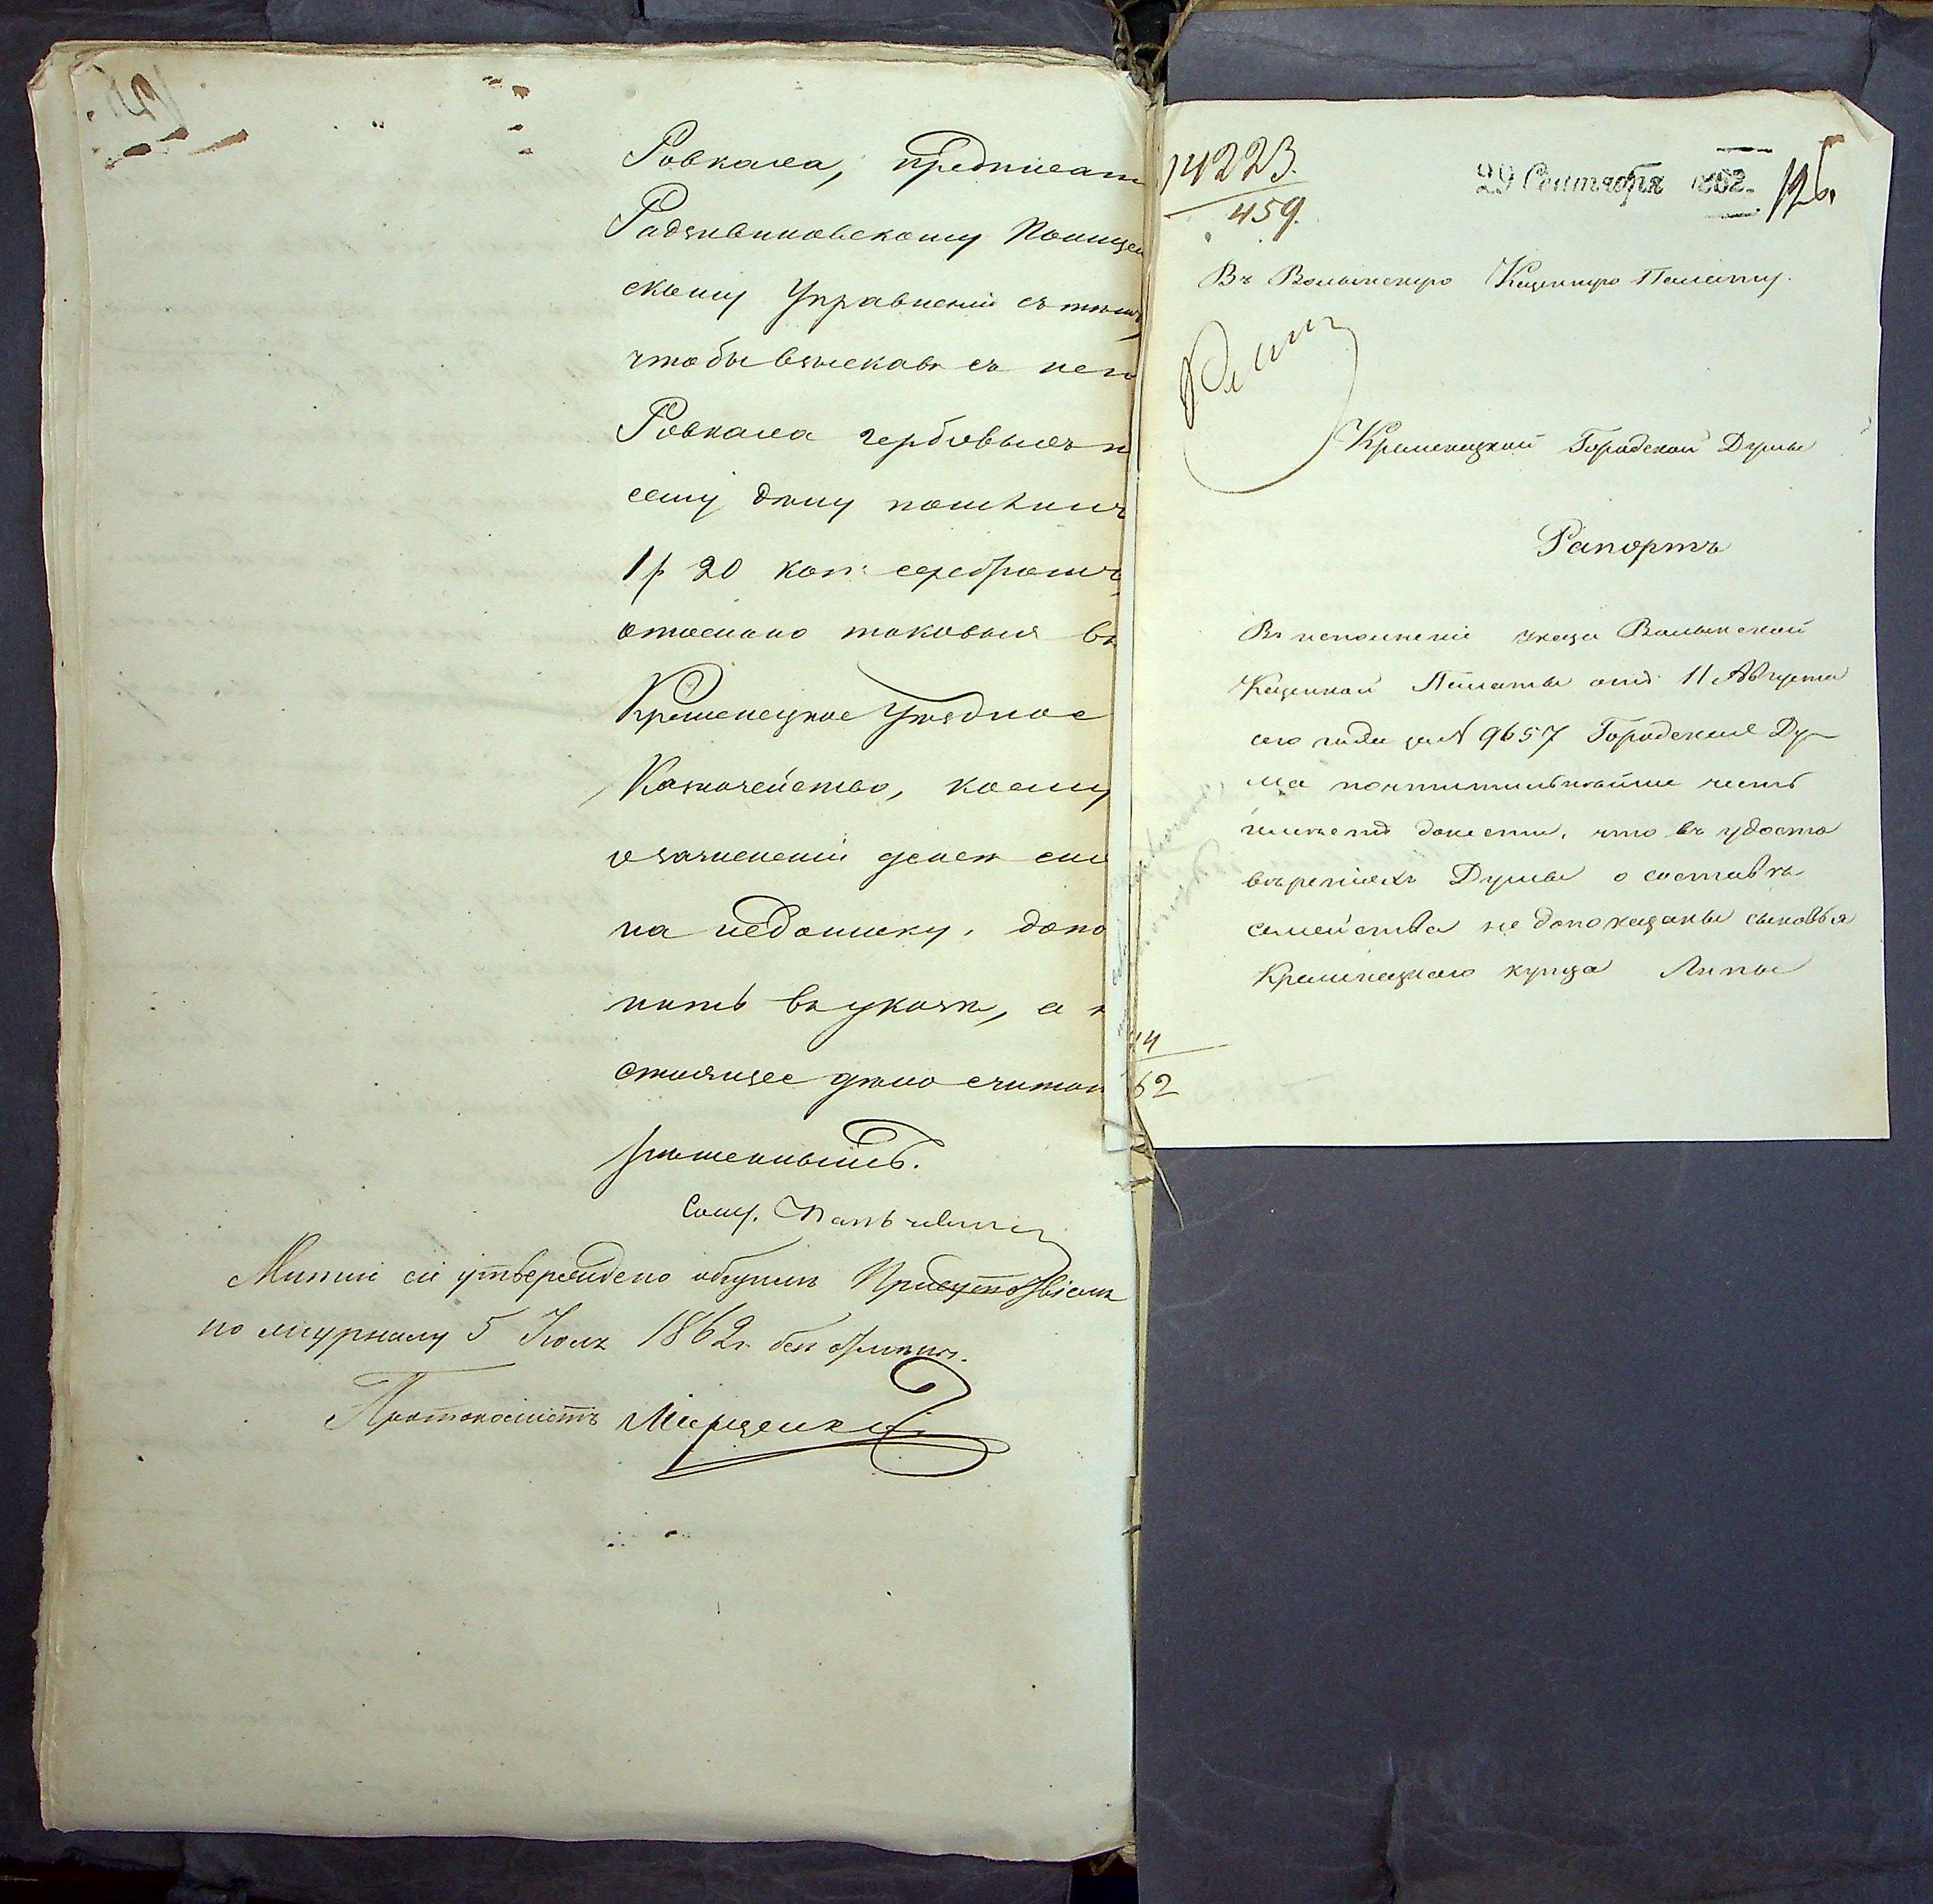 Ровкаха, предписат
Радзивиловскому Полицей
скому Управленію съ тѣмъ,
чтобы взыскавъ съ него
Ровкаха гербовыхъ п
сему дѣлу пошлинъ
1 р 20 коп: серебромъ,
отослано таковыя въ
Кременецкое Уѣздное
Казначейство, коему
о зачисленіи денег сих
на недоимку, допо
нить въ указѣ, а н
стоящее дѣло считат
рѣшеннымъ.
Мнѣніе сіе утверждено общимъ Присутствіемъ
по журналу 5 Іюля 1862 г. без отмѣны.
Протоколистъ Мищенко
14223.
459.
29 Сентября 1862.
126.
Въ Волынскую Казенную Палату.
Кременецкой Городской Думы
Рапортъ
Въ исполненіе указа Волынской
Казенной Палаты отъ 11 Августа
сего года за № 9657 Городская Ду-
ма почтительнѣйше честь
имѣетъ донести, что въ удосто
вѣреніяхъ Думы о составѣ
семейства не допоказаны сыновья
Кременецкаго купца Липы
14
62